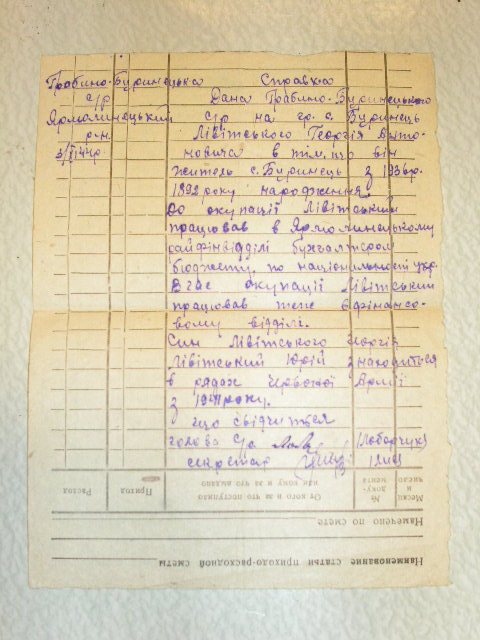 Грабино-Буринецька Справка
с/р Дана Грабино-Буринецького
Ярмолинецький с/р на гр. с. Буринець
р-н. Лівітського Георгія Анто-
3/ІV 44р. новича в тім, що він
житель с. Буринець з 1936р.
1892 року народження.
До окупації Лівітський
працював в Ярмолинецькому
райфінвідділі бухгалтером
бюджету, по національності укр.
В час окупації Лівітський
працював теж в фінансо-
вому відділі.
Син Лівітського Георгія
Лівітський Юрій знаходиться
в рядах Червоної Армії
з 1941 року.
що свідчиться
голова с/р (Лободчук)
секретар
Месяц и число
№ доку-мента
От кого и за что поступило
или кому и за что выдано
Приход
Расход
Намечено по смете
Наименование статьи приходо-расходной сметы